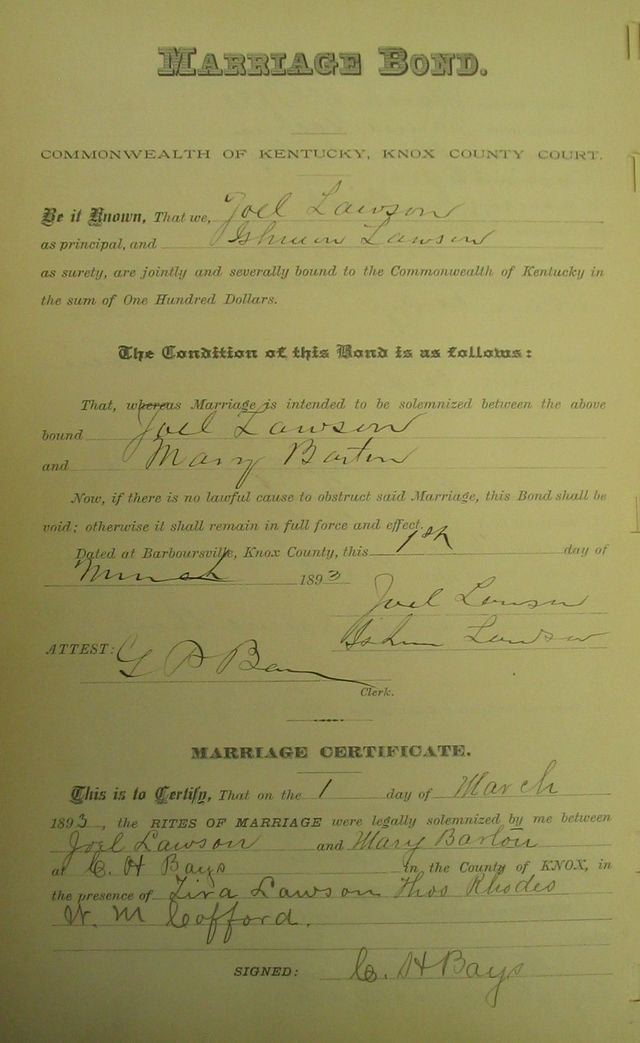 MARRIAGE BOND.
COMMONWEALTH OF KENTUCKY, KNOX COUNTY COURT.
Be it Known, That we, Joel Lawson
as principal, and Ishmon Lawson
as surety, are jointly and severally bound to the Commonwealth of Kentucky in
the sum of One Hundred Dollars.
The Condition of this Bond is as follows:
That, whereas Marriage is intended to be solemnized between the above
bound Joel Lawson
and Mary Barton
Now, if there is no lawful cause to obstruct said Marriage, this Bond shall be
void; otherwise it shall remain in full force and effect.
Dated at Barboursville, Knox County, this 1st day of
March 1893
Joel Lawson
Lawson
ATTEST:
Clerk.
MARRIAGE CERTIFICATE.
This is to Certify, That on the 1 day of March
1893, the RITES OF MARRIAGE were legally solemnized by me between
Joel Lawson and Mary Barton
at C. H Bays in the County of KNOX, in
the presence of Lawson Thos Rhodes
W. M Cofford.
SIGNED: C. H Bays